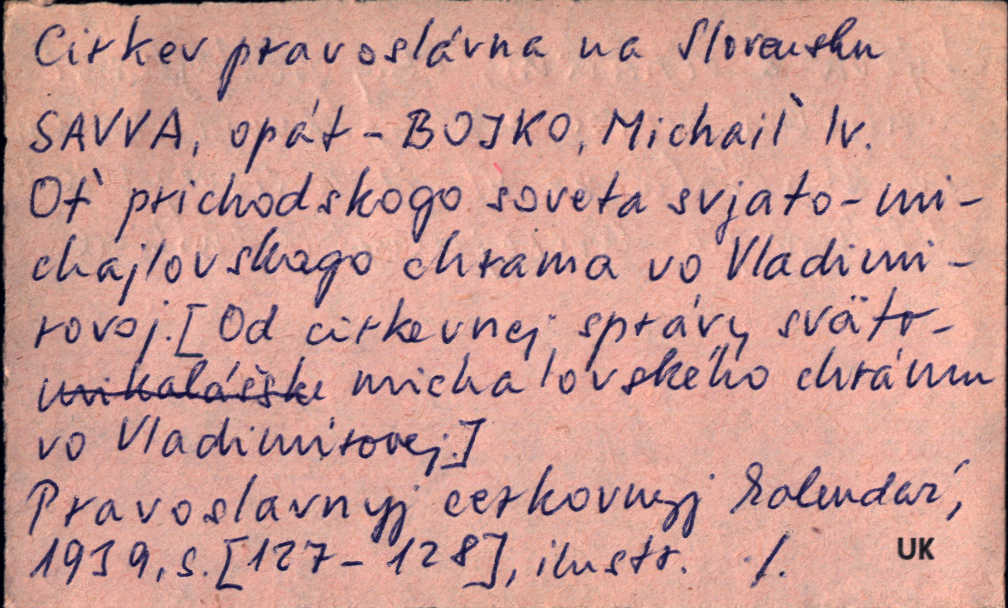 Cirkev pravoslávna na Slovensku
SAVVA, opát - BOJKO, Michail` Iv.
Ot` prichodskogo soveta svjato-mi-
chajlovskago chrama vo Vladimi-
rovoj. [Od cirkevnej správy sväto-
mikulášske michalovského chrámu
vo Vladimirovej.]
Pravoslavnyj cerkovnyj kalendar',
1939, s. [127-128], ilustr. /.
UK